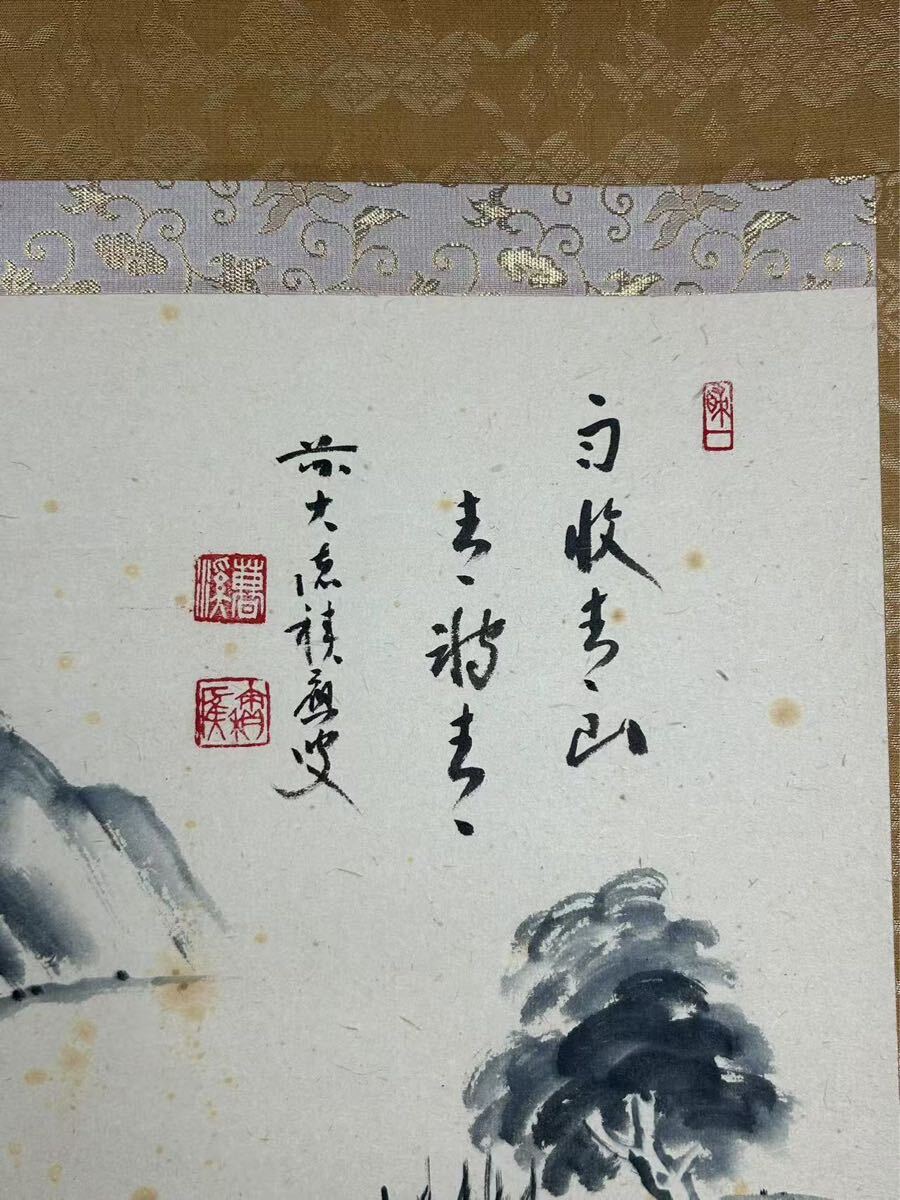 雨收青々山
青々轉青々
前大徳積應叟